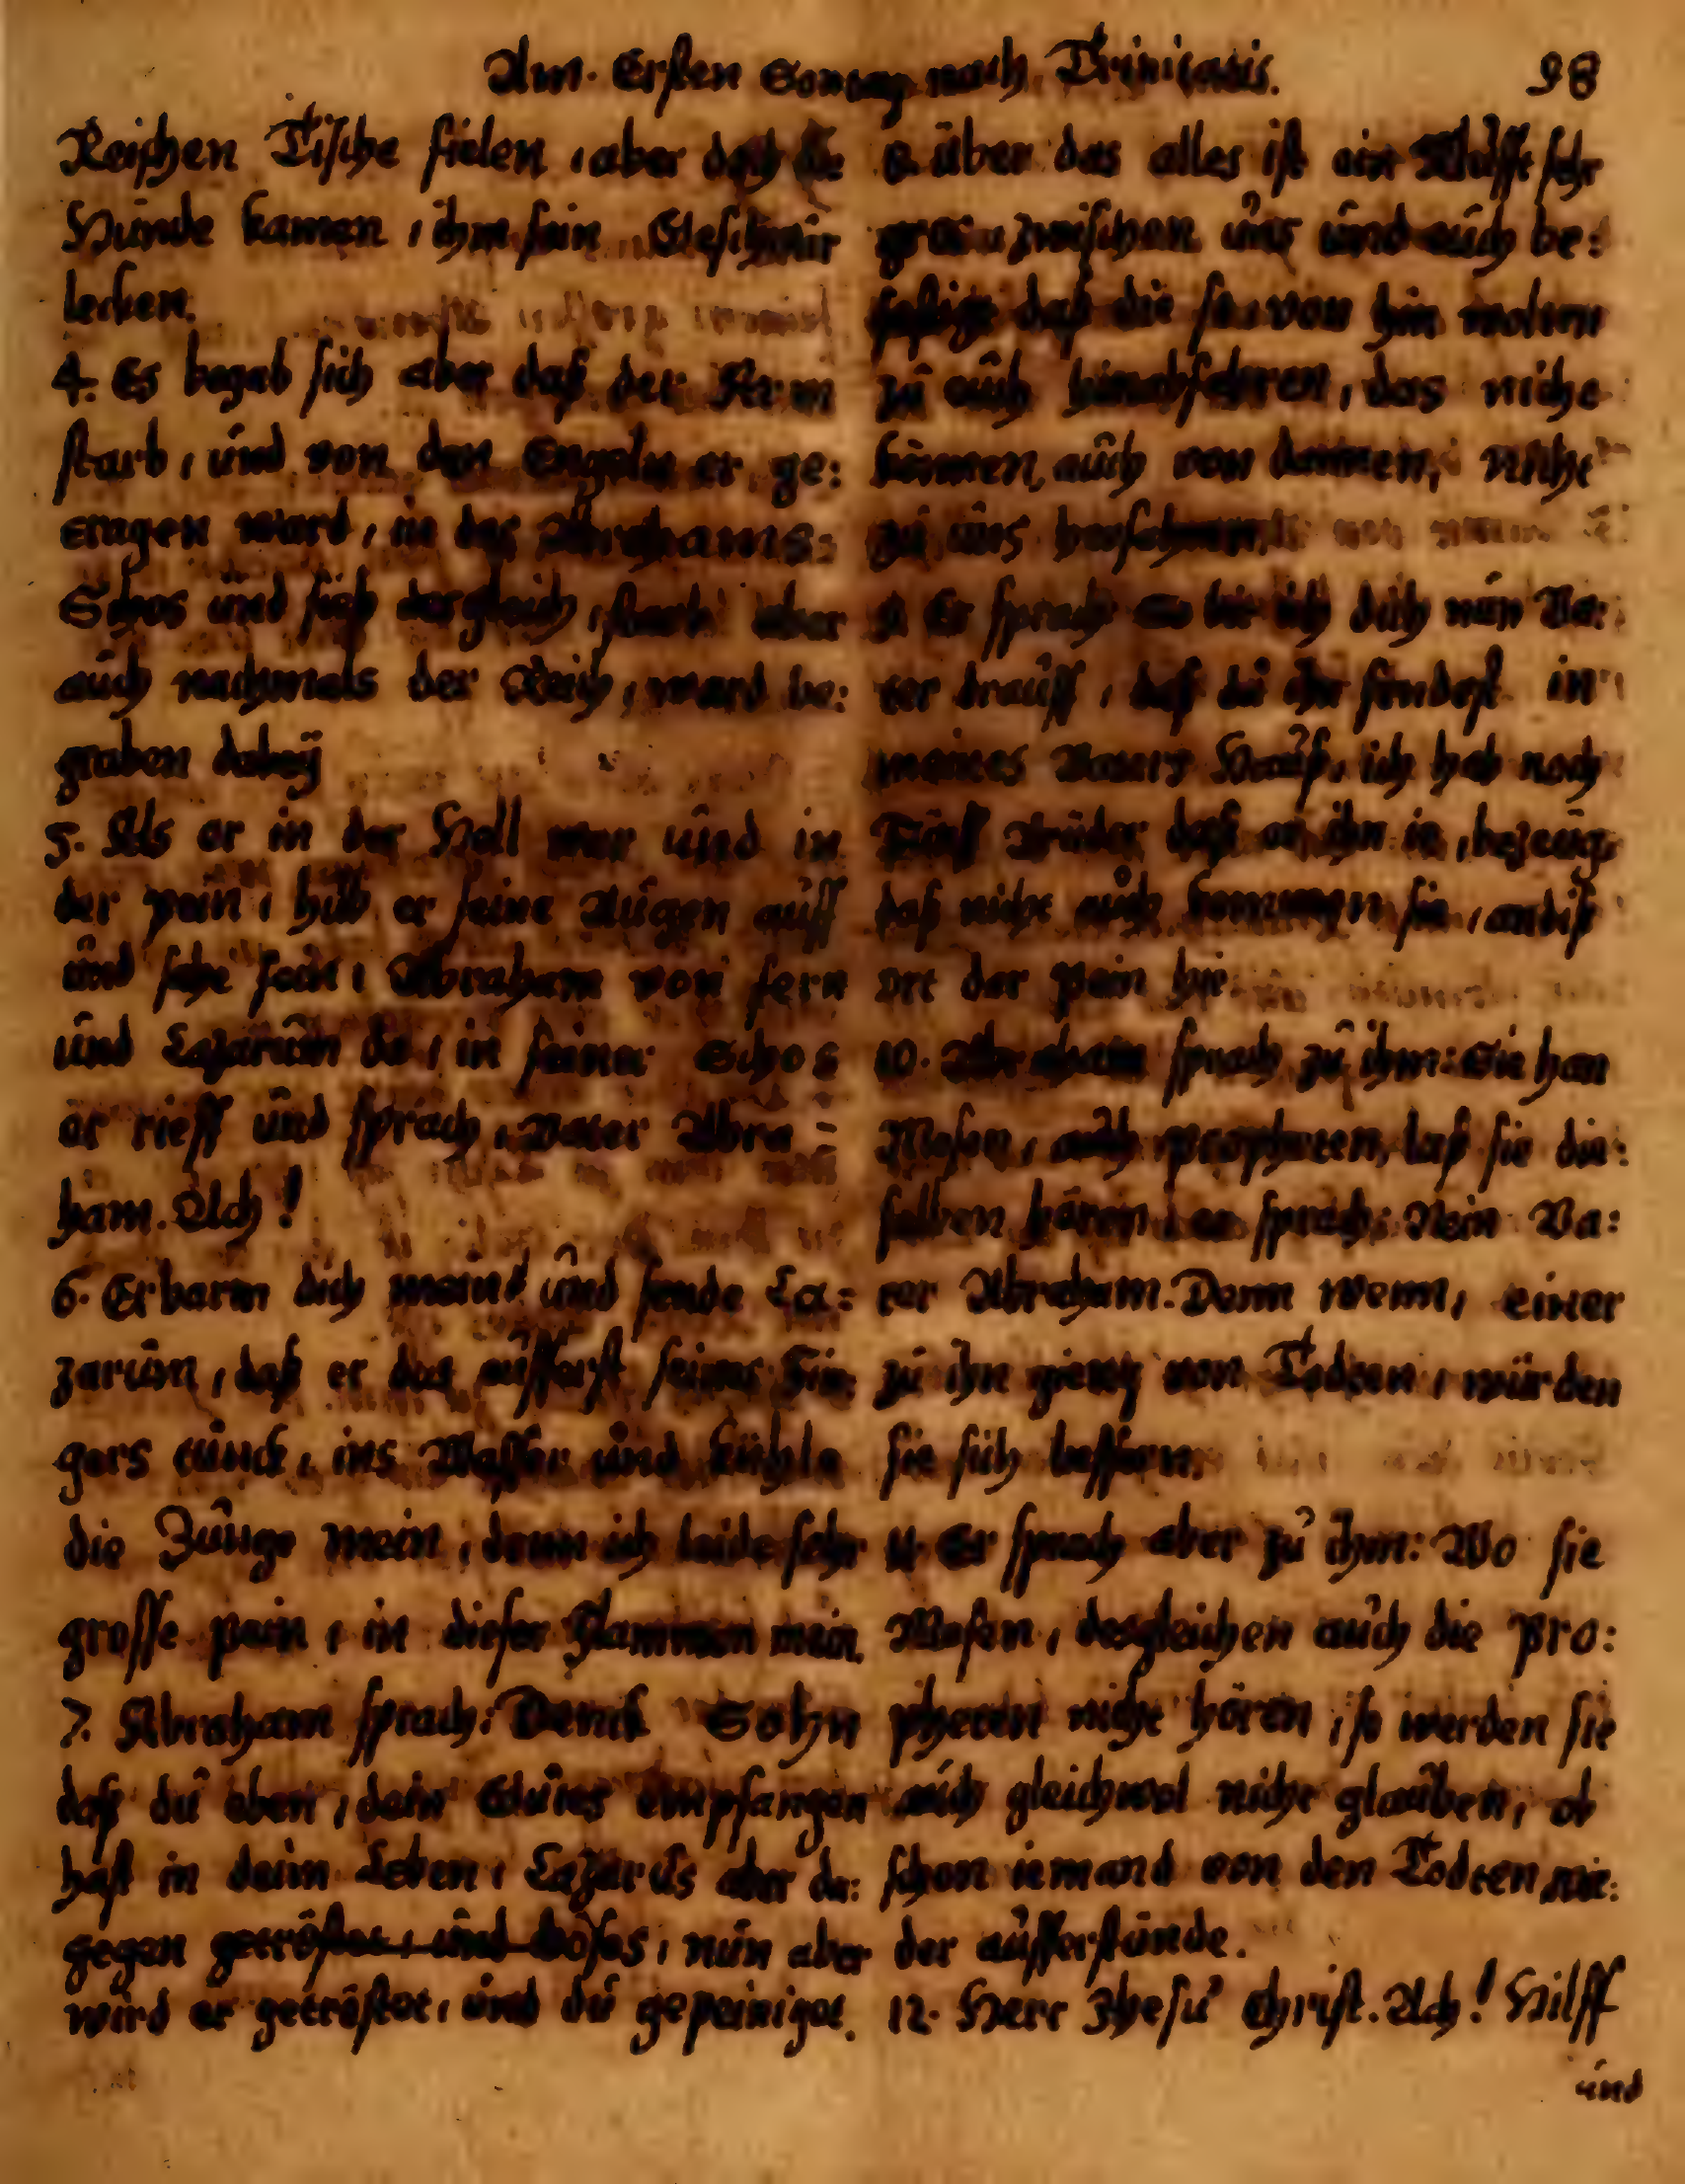 Am. Ersten Sontag nach Trinitatis. 98
Reichen Tische fielen, aber doch die
Hunde kamen, ihm sein Geschwür
lecken.
4. Es begab sich aber daß der Arm
starb, und von den Engeln er ge:
tragen ward, in des Abrahams:
Schos und sich dergleich, starb aber
auch nachmals der Reich, ward be:
graben dabeÿ
5. Als er in der Hell war und in
der pein, hub er seine Augen auff
und sahe Abraham von fern
und Lazarum da, in seiner Schos
er rieff und sprach, Vater Abra-
ham. Ach!
6. Erbarm dich mein und sende La:
zarum, daß er das aüsserst seines Fin:
gers tunck, ins Wasser und kühle
die Zunge mein, denn ich leide sehr
grosse pein, in dieser Flammen mein.
7. Abraham sprach: Denck Sohn
daß du eben, dein Guts empfangen
hast in deim Leben, Lazarus aber da:
gegen getröstet, und böses, nun aber
wird er getröstet, und du gepeiniget.
8. über das alles ist ein Klufft sehr
gros zwischen uns und euch be:
festigt daß die so von hin wolten
zu euch hinabfahren, das nicht
können, auch von dannen, nicht
zu uns
9. Er sprach So bit ich dich nun Va:
ter drauff, daß du ihn sendest in
meines Vaters Hauß, ich hab noch
Fünff Brüder daß er ihn bezeug,
daß nicht auch kommen sie, an diß
ort der pein hie.
10. Abraham sprach zu ihm: Sie han
Mosen, auch propheten, laß sie die:
selben hören, er sprach: Nein Va:
ter Abraham. Denn wenn, einer
zu ihn gieng von Todten, würden
sie sich bessern.
11. Er sprach aber zu ihm: Wo sie
Mosen, desgleichen auch die pro:
pheten nicht hören, so werden sie
auch gleichwol nicht glauben, ob
schon iemand von den Todten wie:
der aufferstunde.
12. Herr Jhesu Christ. Ach! Hilff
und